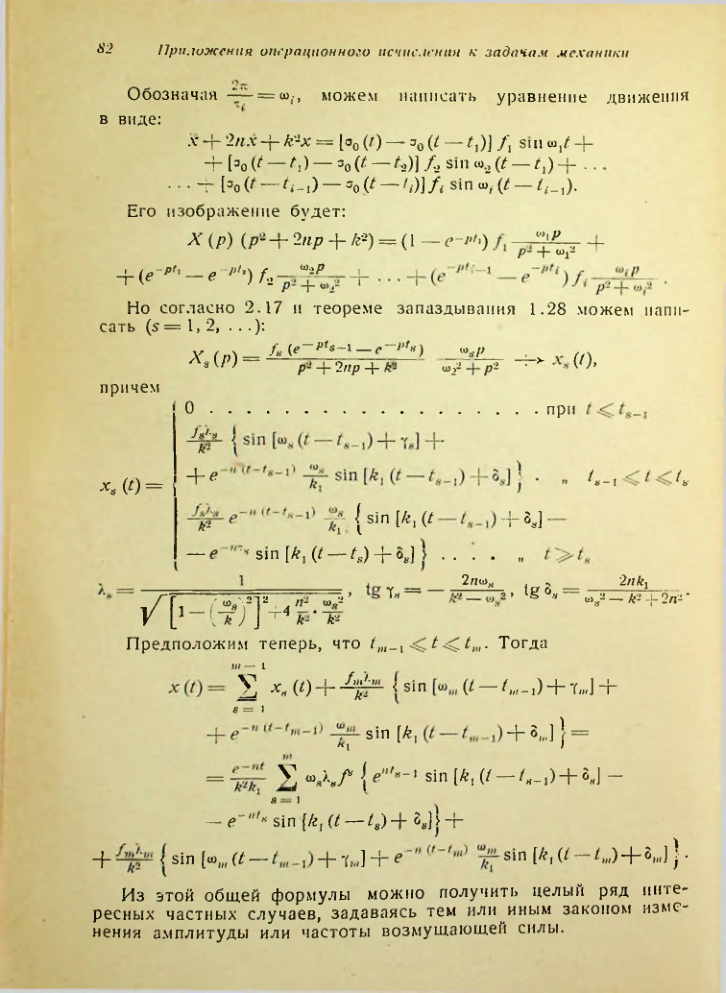 82 Приложения операционного исчисления к задачам механики
Обозначая 2π/τᵢ = ωᵢ, можем написать уравнение движения
в виде:
ẍ + 2nẋ + k²x = [σ₀(t) — σ₀(t — t₁)] f₁ sin ω₁t +
+ [σ₀(t — t₁) — σ₀(t — t₂)] f₂ sin ω₂(t — t₁) + . . .
. . . + [σ₀(t — tᵢ₋₁) — σ₀(t — tᵢ)] fᵢ sin ωᵢ(t — tᵢ₋₁).
Его изображение будет:
X(p) (p² + 2np + k²) = (1 — e^{-pt₁}) f₁ ω₁p/(p² + ω₁²) +
+ (e^{-pt₁} — e^{-pt₂}) f₂ ω₂p/(p² + ω₂²) + . . . + (e^{-ptᵢ₋₁} — e^{-ptᵢ}) fᵢ ωᵢp/(p² + ωᵢ²) .
Но согласно 2.17 и теореме запаздывания 1.28 можем напи-
сать (s = 1, 2, . . .):
X_s(p) = f_s(e^{-pt_{s-1}} — e^{-pt_s})/(p² + 2np + k²) ω_s p/(ω_s² + p²) ⟶ x_s(t),
причем
x_s(t) = { 0 . . . . . . . . . . . . . . . . . . . . . при t ⩽ t_{s-1}
f_sλ_s/k² { sin [ω_s(t — t_{s-1}) + γ_s] +
+ e^{-n(t-t_{s-1})} ω_s/k₁ sin [k₁(t — t_{s-1}) + δ_s] } . „ t_{s-1} ⩽ t ⩽ t_s
f_sλ_s/k² e^{-n(t-t_{s-1})} ω_s/k₁ { sin [k₁(t — t_{s-1}) + δ_s] —
— e^{-nτ_s} sin [k₁(t — t_s) + δ_s] } . . . . „ t ⩾ t_s
λ_s = 1/√([1 — (ω_s/k)²]² + 4 n²/k² · ω_s²/k²), tg γ_s = — 2nω_s/(k² — ω_s²), tg δ_s = 2nk₁/(ω_s² — k² + 2n²).
Предположим теперь, что t_{m-1} ⩽ t ⩽ t_m. Тогда
x(t) = ∑_{s=1}^{m-1} x_s(t) + f_mλ_m/k² { sin [ω_m(t — t_{m-1}) + γ_m] +
+ e^{-n(t-t_{m-1})} ω_m/k₁ sin [k₁(t — t_{m-1}) + δ_m] } =
= e^{-nt}/k²k₁ ∑_{s=1}^{m} ω_sλ_sf^s { e^{nt_{s-1}} sin [k₁(t — t_{s-1}) + δ_s] —
— e^{-nt_s} sin [k₁(t — t_s) + δ_s]} +
+ f_mλ_m/k² { sin [ω_m(t — t_{m-1}) + γ_m] + e^{-n(t-t_m)} ω_m/k₁ sin [k₁(t — t_m) + δ_m] } .
Из этой общей формулы можно получить целый ряд инте-
ресных частных случаев, задаваясь тем или иным законом изме-
нения амплитуды или частоты возмущающей силы.